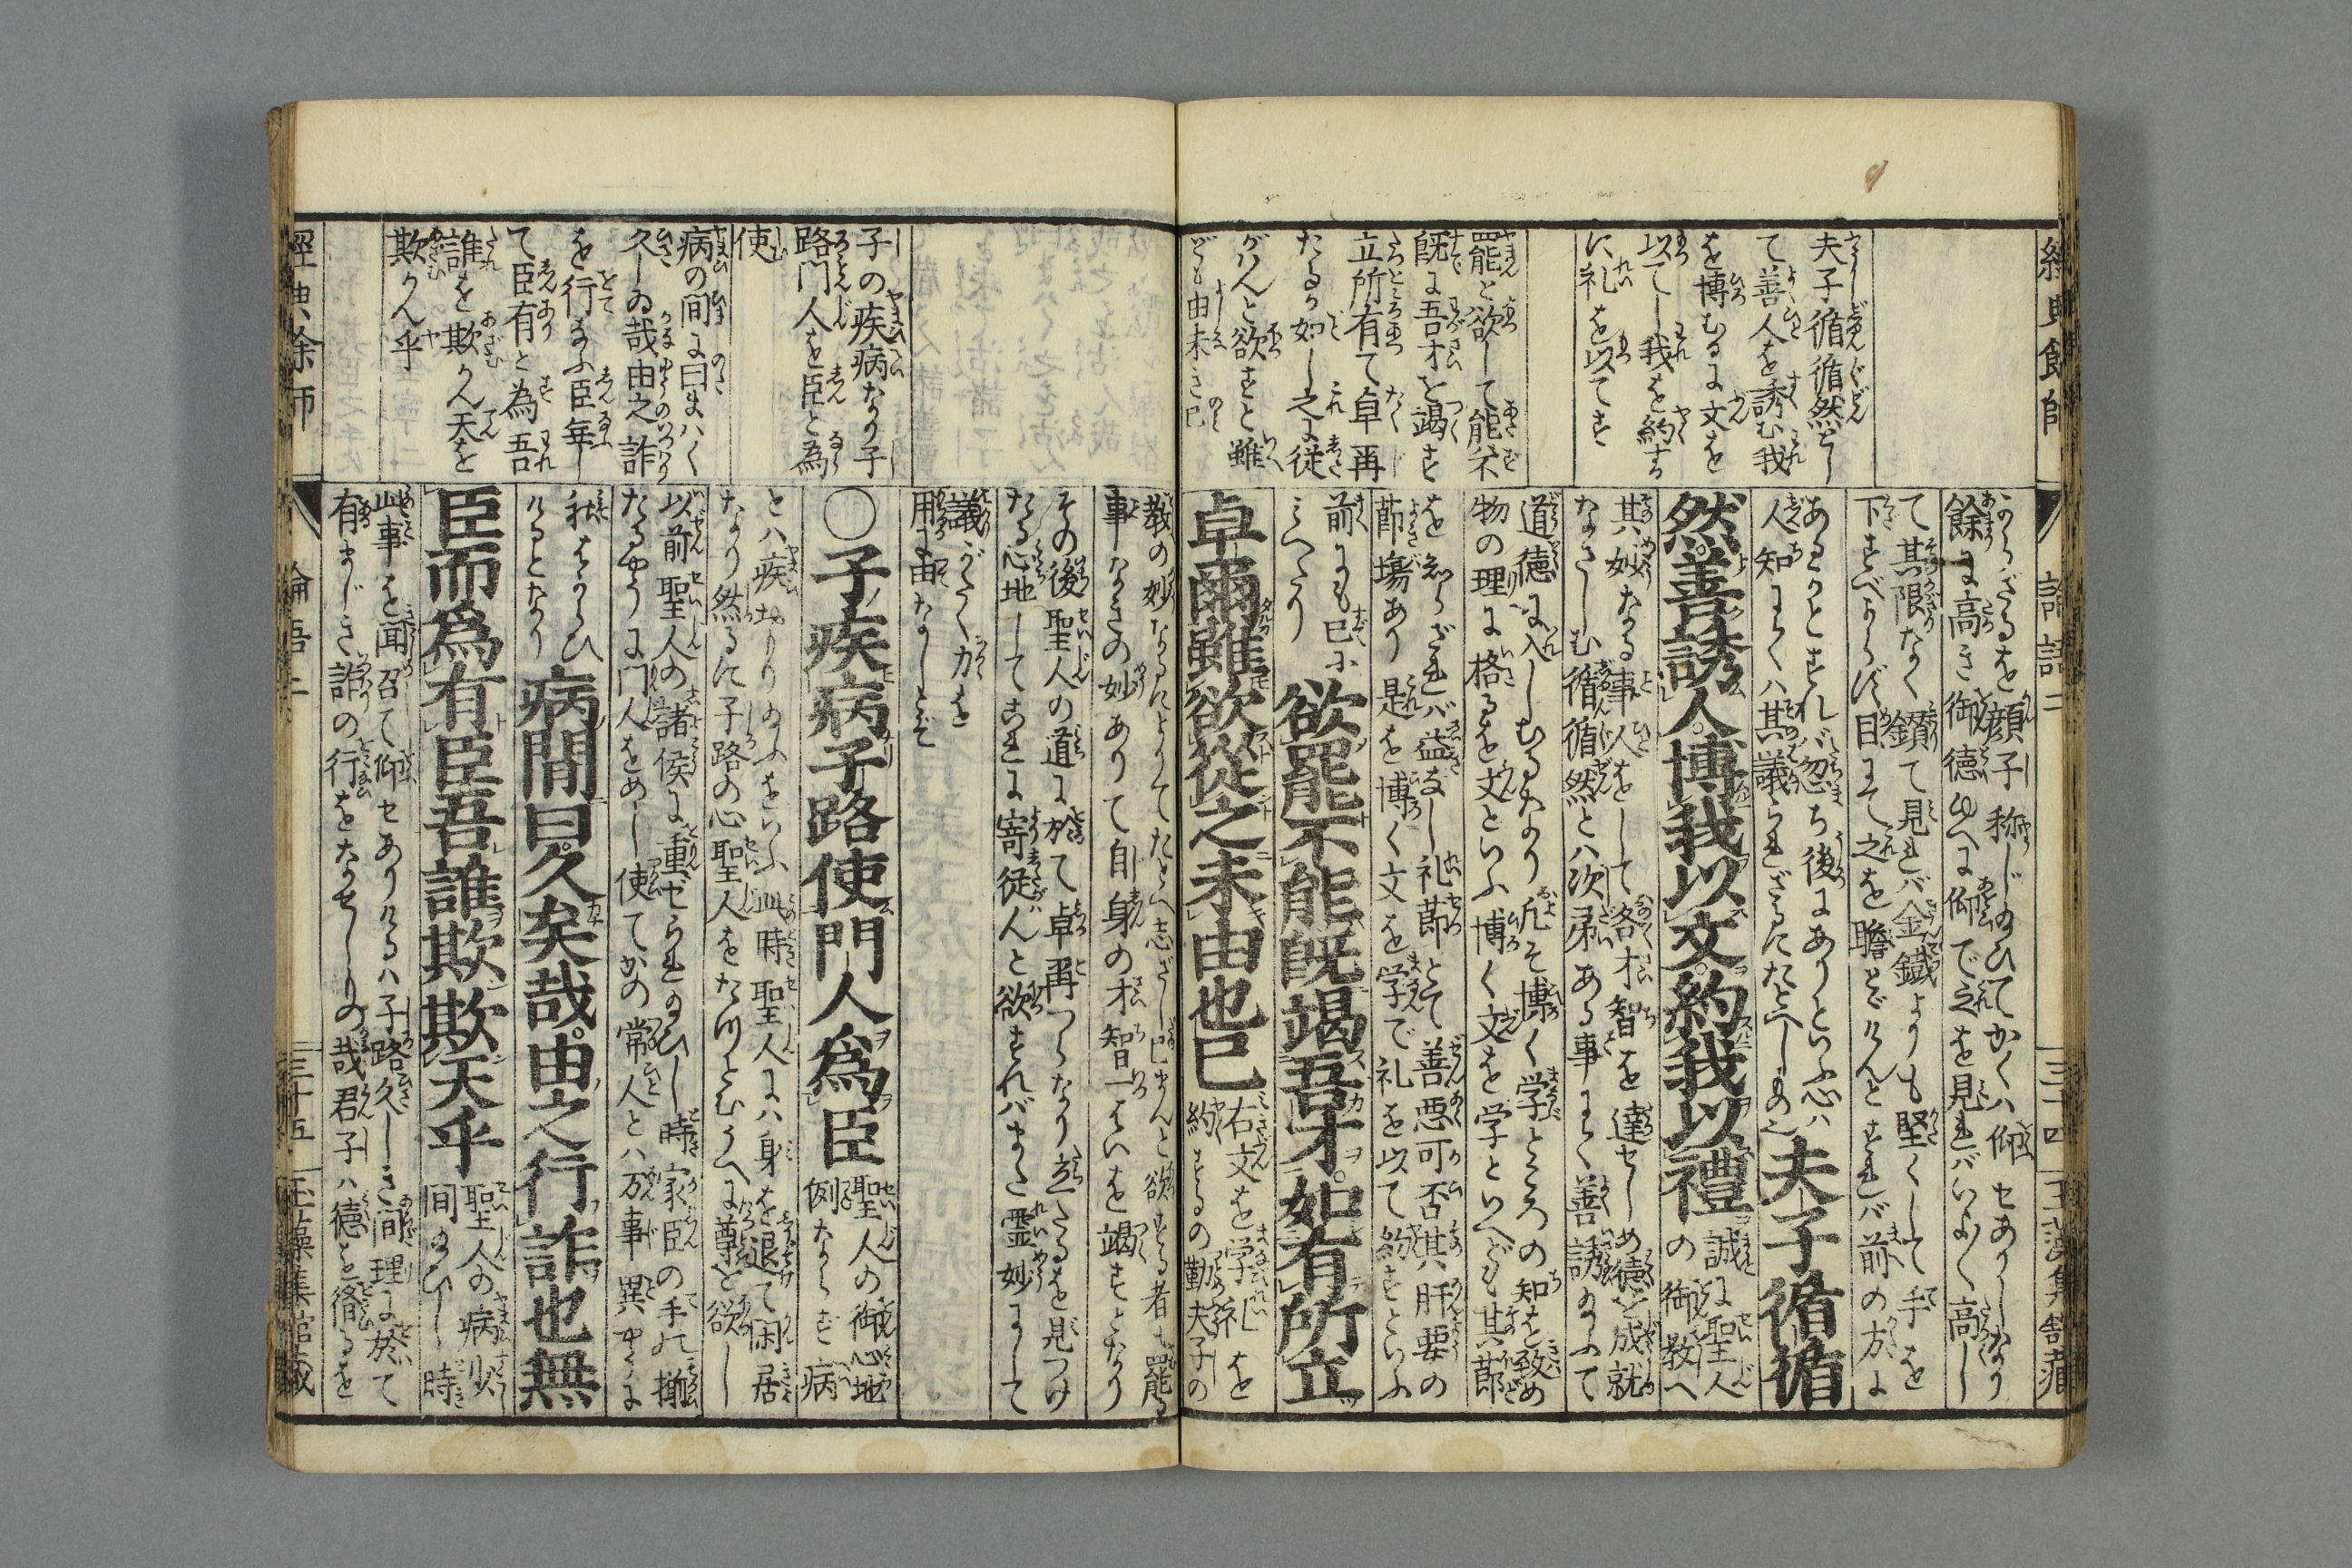 經典餘師
論語二
三十四
夫子循循然として
て善人を誘む我
を博むるに文を
以てし我を約する
に礼を以てす
罷と欲して能不
既に吾才を竭す
立所有て卓爾
たるが如し之に從
がハんと欲すと雖
ども由未き已
からざるを顔子称じ給ひてかくハ仰セありしなり
餘に高き御徳ゆへに仰で之を見れバいよ〱高し
て其限なく鑽て見れバ金鐵よりも堅くして手を
下すべからず目にて之を瞻とゞけんとすれバ前の方に
あるかとすれバ忽ち後にありといふ心ハ
人知にてハ其議られざるにたとへし也
夫子循循
然善誘人博我以文約我以禮
誠に聖人
の御教へ
其妙なる事人をして各才智を達せしめ徳を成就
なさしむ循循然とハ次第ある事にて善誘給ふて
道徳に入しむるなり凡そ博く学ところの知を致め
物の理に格るを文といふ博く文を学といへども其節
を知らざれバ益なし礼節とて善悪可否其肝要の
節塲あり是を博く文を学で礼を以て約すといふ
前にも已に
みへたり
欲罷不能既竭吾才如有所立
卓爾雖欲從之未由也已
右文を学礼を
約するの勤夫子の
教の妙なるによりてたとへ志ざし已まんと欲する者も罷る
事なきの妙ありて自身の才智一はいを竭すとなり
その後聖人の道に於て卓爾つらなり立たるを見つけ
たる心地してこれに寄従ハんと欲すれバまた霊妙にして
議がたく力を
用に由なしとぞ
子の疾病なり子
路門人を臣と為
使
病の間に曰まハく
久しゐ哉由之詐
を行なふ臣無し
て臣有と為吾
誰を欺かん天を
欺かん乎
〇子疾病子路使門人爲臣
聖人の御心地
例ならず病
とハ疾おもり給ふをいふ此時聖人にハ身を退て閑居
なり然るに子路の心聖人をたつとむうへに尊を欲し
以前聖人の諸侯に重ぜられ給ひし時家臣の手に揃
たるやうに門人をめし使てかの常人とハ万事異やうに
私はからひ
けるとなり
病間曰久矣哉由之行詐也無
臣而爲有臣吾誰欺欺天乎
聖人の病少
間給ひし時
此事を聞召て仰セありけるハ子路久しき間理に於て
有まじき詐の行をなせしもの哉君子ハ徳を脩るを
經典余師
論語二
三十五
玉藻集舘藏